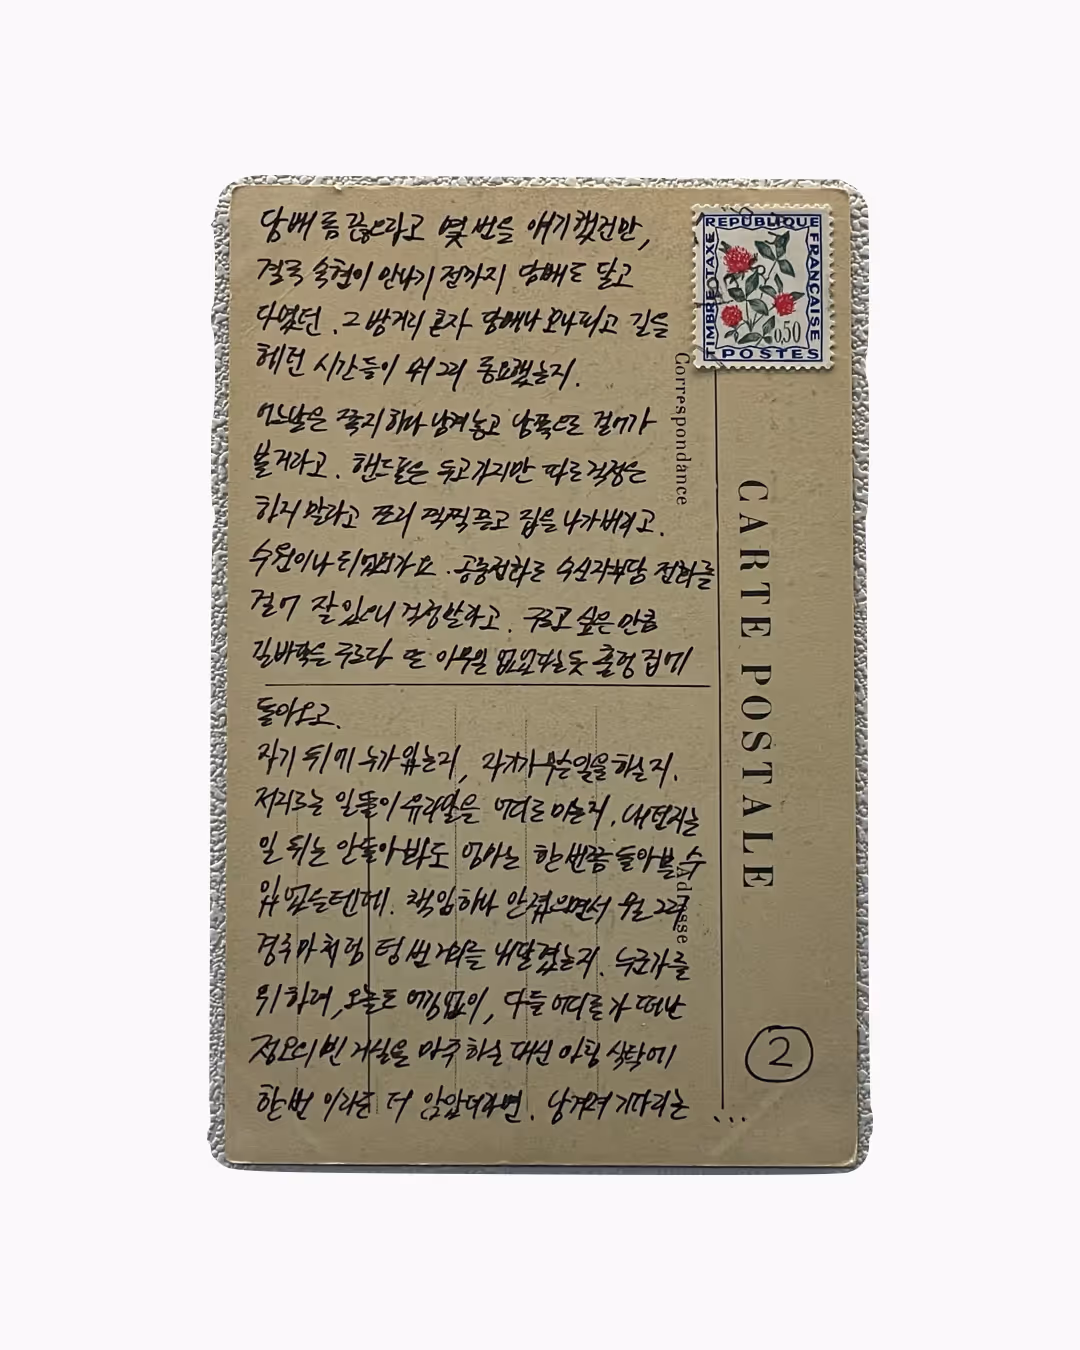 담배를 끊으라고 몇 번을 얘기했건만,
결국 숙현이 만나기 전까지 담배도 달고
다녔던. 그 밤거리 혼자 담배나 오나 피고 길을
헤던 시간들이 뭐 그리 중요했는지.
어느날은 쪽지 하나 남겨놓고 남쪽으로 걸어가
볼거라고. 핸드폰은 두고가지만 따로 걱정은
하지 말라고 쪼리 찍찍 끌고 집을 나가버리고.
수원이나 되었던가요. 공중전화로 수신자부담 전화를
걸어 잘 있으니 걱정말라고. 구르고 싶은 만큼
길바닥을 구르다 또 아무일 없었다는듯 훌렁 집에
돌아오고.
자기 뒤에 누가 있는지, 자기가 무슨일을 하는지.
저지르는 일들이 유라말을 어디로 미는지. 내던지는
일 뒤는 안돌아봐도 엄마는 한번쯤 돌아볼 수
있었을텐데. 책임하나 안졌으면서 뭘 그리
경주마처럼 텅 빈 거리를 내달렸는지. 누군가를
위하려, 오늘도 어김없이, 다들 어디론가 떠난
정오의 빈 거실을 마주하는 대신 아침 식탁에
한번 이라도 더 앉았더라면. 남겨져 기다리는 ...
②
REPUBLIQUE FRANÇAISE
TIMBRE TAXE
0,50
POSTES
Correspondance
CARTE POSTALE
Adresse